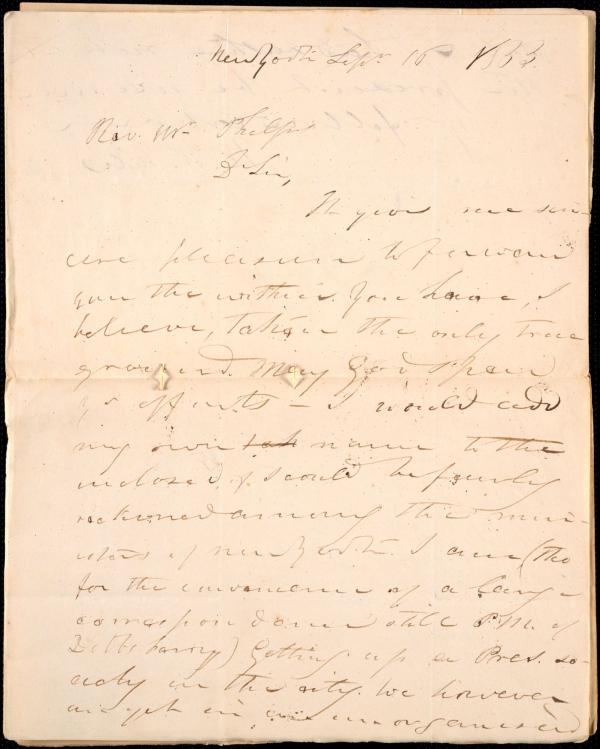 New York Sepr 16 1833.
Rev. Mr Phelps
Dr Sir,
It gives me sin-
cere pleasure to forward
you the within. You have, I
believe, taken the only true
ground. May God speed
yr efforts – I would add
my own name to the
inclosed, if I could be fairly
reckoned among the min-
isters of New York. I am (tho
for the convenience of a large
correspondence still P.M. of
) Getting up a Pres. so-
ciety in the city. We however
are yet in an unorganised